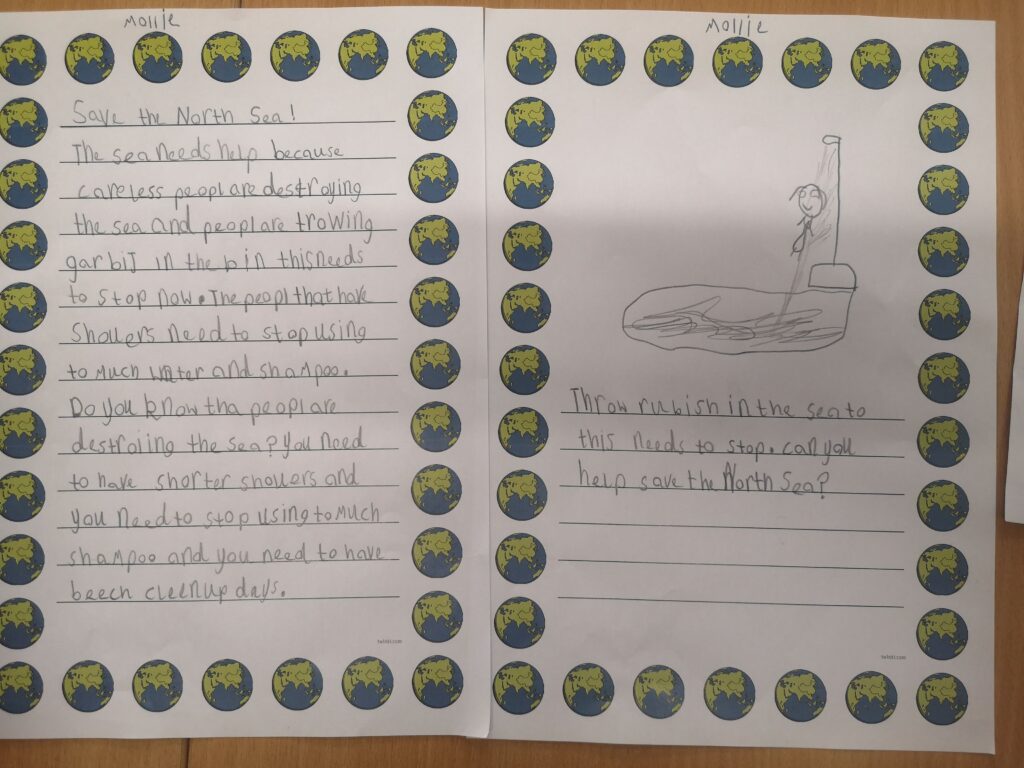 Mollie
Save the North Sea!
The sea needs help because
careless peopl are destroying
the sea and peopl are trowing
garbij in the bin this needs
to stop now. The peopl that have
showers need to stop using
to much water and shampoo.
Do you know tha peopl are
destroiing the sea? you need
to have shorter showers and
you need to stop using to much
shampoo and you need to have
beech cleenup days.
twinkl.com
Mollie
Throw rubish in the sea to
this needs to stop. can you
help save the North Sea?
twinkl.com